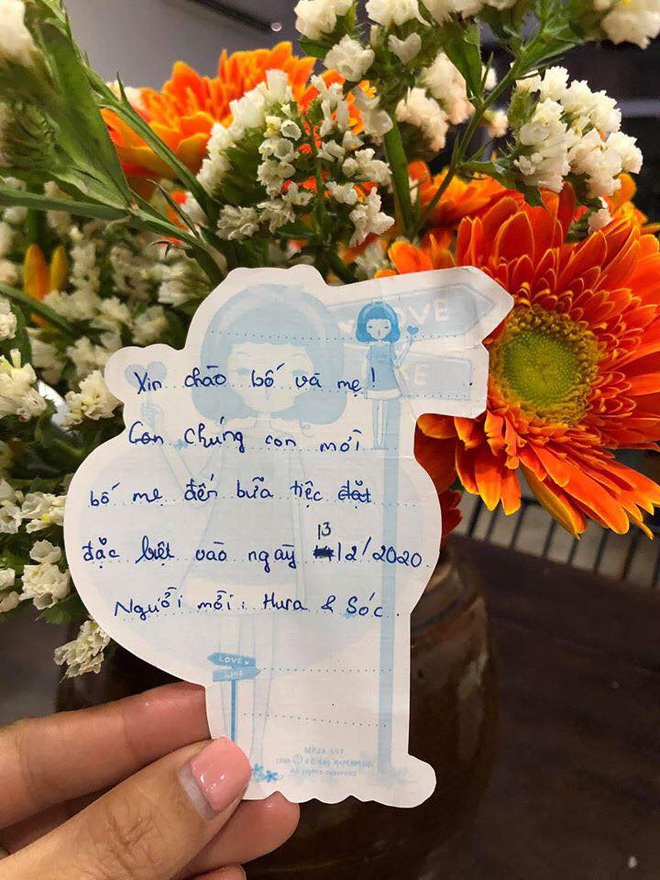 LOVE
Xin chào bố và mẹ!
Con chúng con mời
bố mẹ đến bữa tiệc đặt
đặc biệt vào ngày 13/2/2020
Người mời: Hưa & Sóc.
LOVE
LIKE
All rights reserved